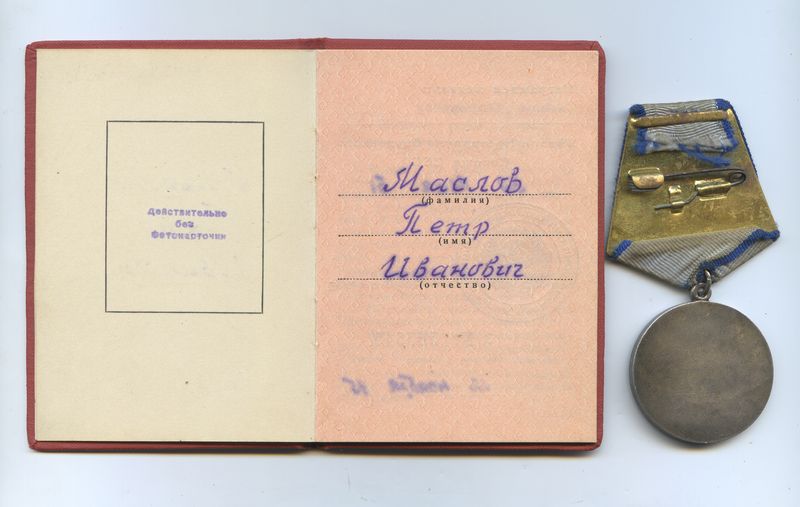 Действительно
без
Фотокарточки
Маслов
(фамилия)
Петр
(имя)
Иванович
(отчество)